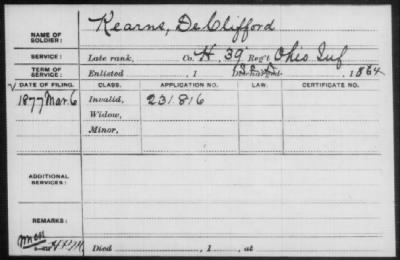 NAME OF SOLDIER: Kearns, DeClifford
SERVICE: Late rank, Co. H. 39" Reg't Ohio Inf
TERM OF SERVICE: Enlisted , 1 Discharged , 1864
DATE OF FILING. CLASS. APPLICATION NO. LAW. CERTIFICATE NO.
1877 Mar. 6 Invalid, 231.816
Widow,
Minor,
ADDITIONAL SERVICES:
REMARKS:
Died , 1 , at